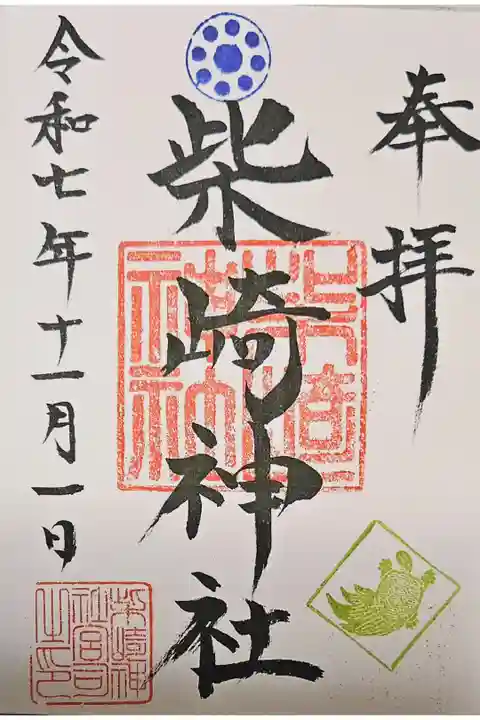 奉拝
柴崎神社
柴崎神社
令和七年十一月一日
柴崎神社宮司之印